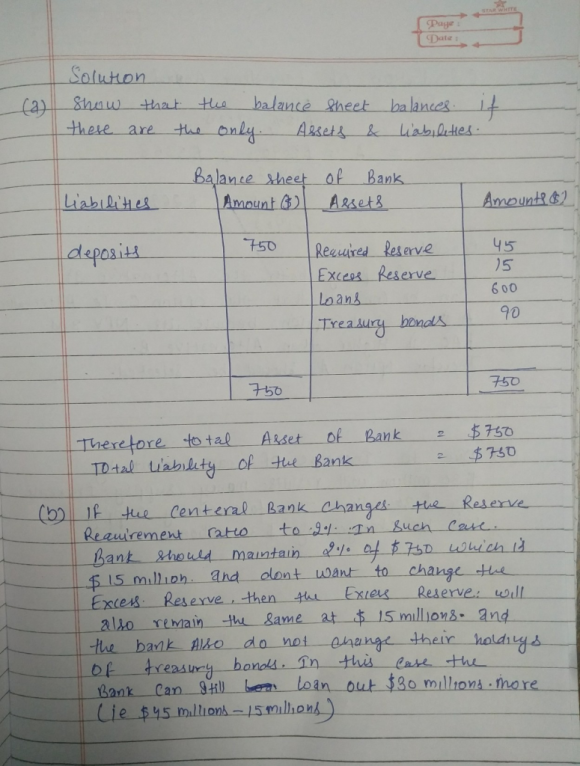 STAR WHITE
Page:
Date:
Solution
(a) Show that the balance sheet balances if
these are the only. Assets & liabilities.
Balance sheet of Bank
Liabilities Amount ($) Assets Amounts ($)
deposits 750 Required Reserve 45
Excess Reserve 15
loans 600
Treasury bonds 90
750 750
Therefore total Asset of Bank = $750
Total liability of the Bank = $750
(b) If the centeral Bank changes the Reserve
Requirement ratio to 2%. In such case.
Bank should maintain 2% of $750 which is
$15 million. and dont want to change the
Excess Reserve. then the Excess Reserve: will
also remain the same at $15 millions. and
the bank Also do not change their holdings
of treasury bonds. In this case the
Bank can still loan out $30 millions. more
(ie $45 millions - 15 millions)